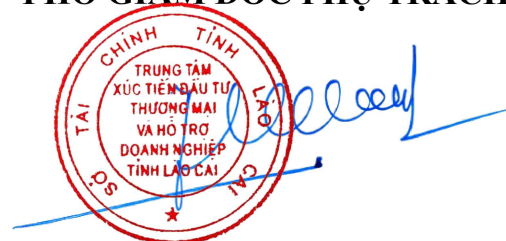 PHÓ GIÁM ĐỐC PHỤ TRÁCH
SỞ TÀI CHÍNH TỈNH LÀO CAI
TRUNG TÂM
XÚC TIẾN ĐẦU TƯ
THƯƠNG MẠI
VÀ HỖ TRỢ
DOANH NGHIỆP
TỈNH LÀO CAI